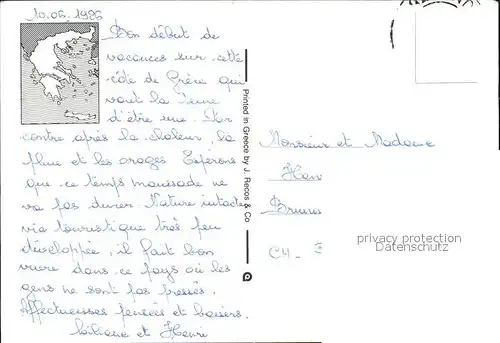 10.06.1986
Bon début de
vacances sur cette
côte de Grèce qui
vaut la peine
d'être vue. Par
contre après la chaleur, la
pluie et les orages. Espérons
que ce temps maussade ne
va pas durer. Nature intacte
vie touristique très peu
développée, il fait bon
vivre dans ce pays où les
gens ne sont pas pressés.
Affectueuses pensées et baisers.
Liliane et Henri
Printed in Greece by J. Recos & Co
Monsieur et Madame
CH -
privacy protection
Datenschutz